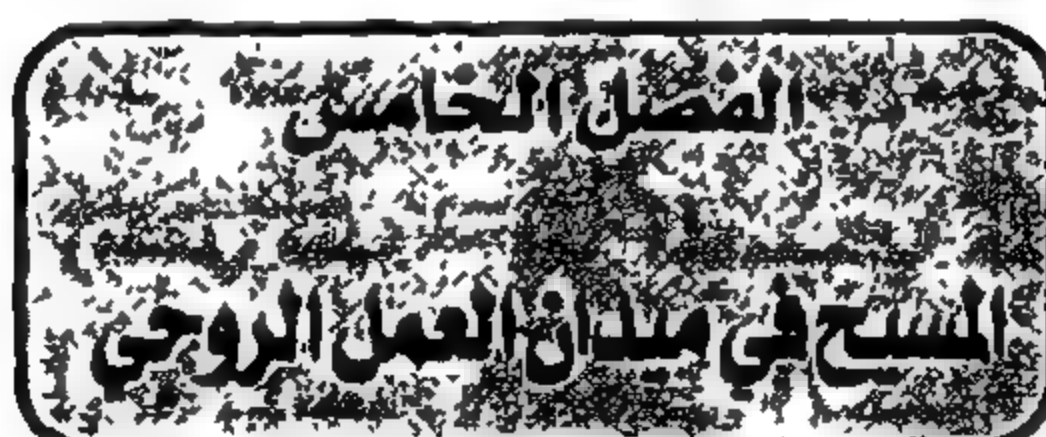 الفصل الخامس
المسلح في ميدان العمل الروحي